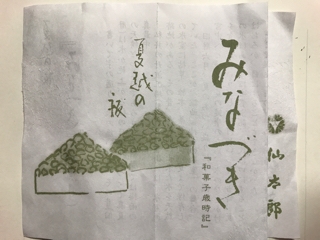 みなづき
『和菓子歳時記』
夏越の
祓
仙太郎